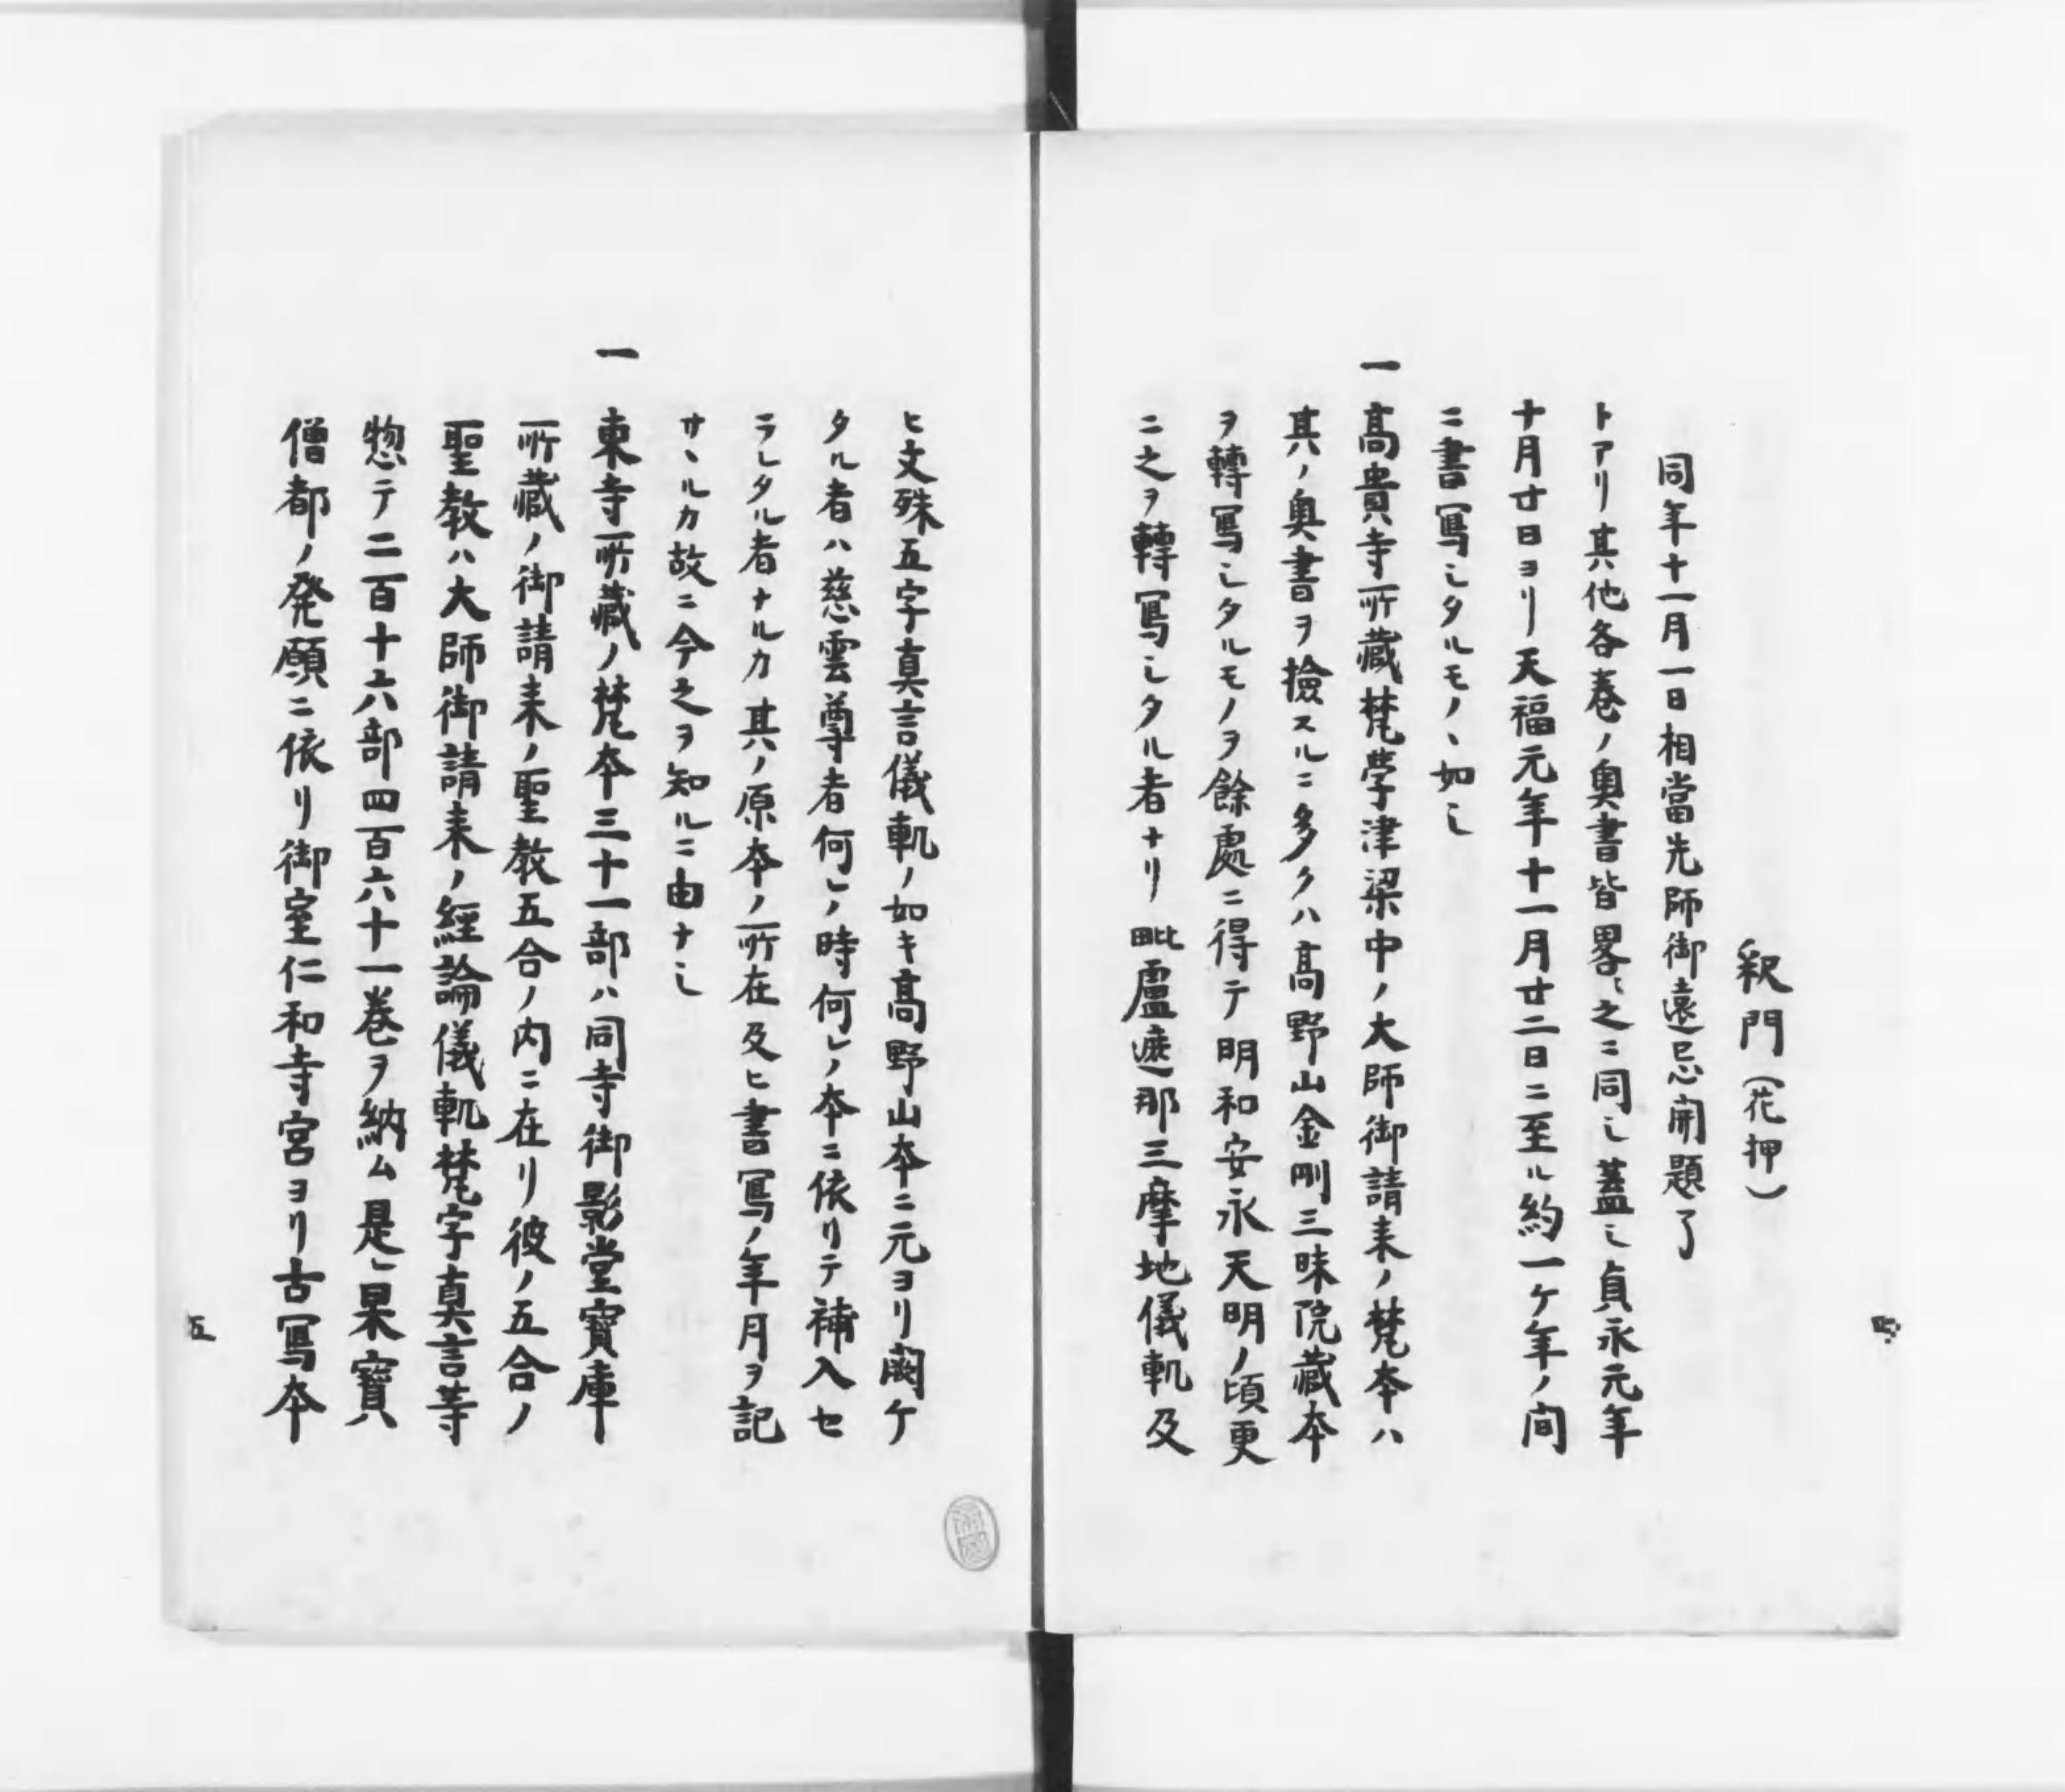 釈門（花押）
同年十一月一日相當先師御遠忌開題了
トアリ其他各巻ノ奥書皆畧之ニ同シ蓋シ貞永元年
十月廿日ヨリ天福元年十一月廿二日ニ至ル約一ケ年ノ間
ニ書寫シタルモノヽ如シ
一
髙貴寺所藏梵學津梁中ノ大師御請来ノ梵本ハ
其ノ奥書ヲ撿スルニ多クハ髙野山金剛三昧院藏本
ヲ轉寫シタルモノヲ餘處ニ得テ明和安永天明ノ頃更
ニ之ヲ轉寫シタル者ナリ毗盧遮那三摩地儀軌及
四
ヒ文殊五字真言儀軌ノ如キ髙野山本ニ元ヨリ闕ケ
タル者ハ慈雲尊者何レノ時何レノ本ニ依リテ補入セ
ラレタル者ナルカ其ノ原本ノ所在及ヒ書寫ノ年月ヲ記
サヽルカ故ニ今之ヲ知ルニ由ナシ
一
東寺所藏ノ梵本三十一部ハ同寺御影堂寶庫
所藏ノ御請来ノ聖教五合ノ内ニ在リ彼ノ五合ノ
聖教ハ大師御請来ノ經論儀軌梵字真言等
惣テ二百十六部四百六十一巻ヲ納ム是レ杲寶
僧都ノ発願ニ依リ御室仁和寺宮ヨリ古寫本
五